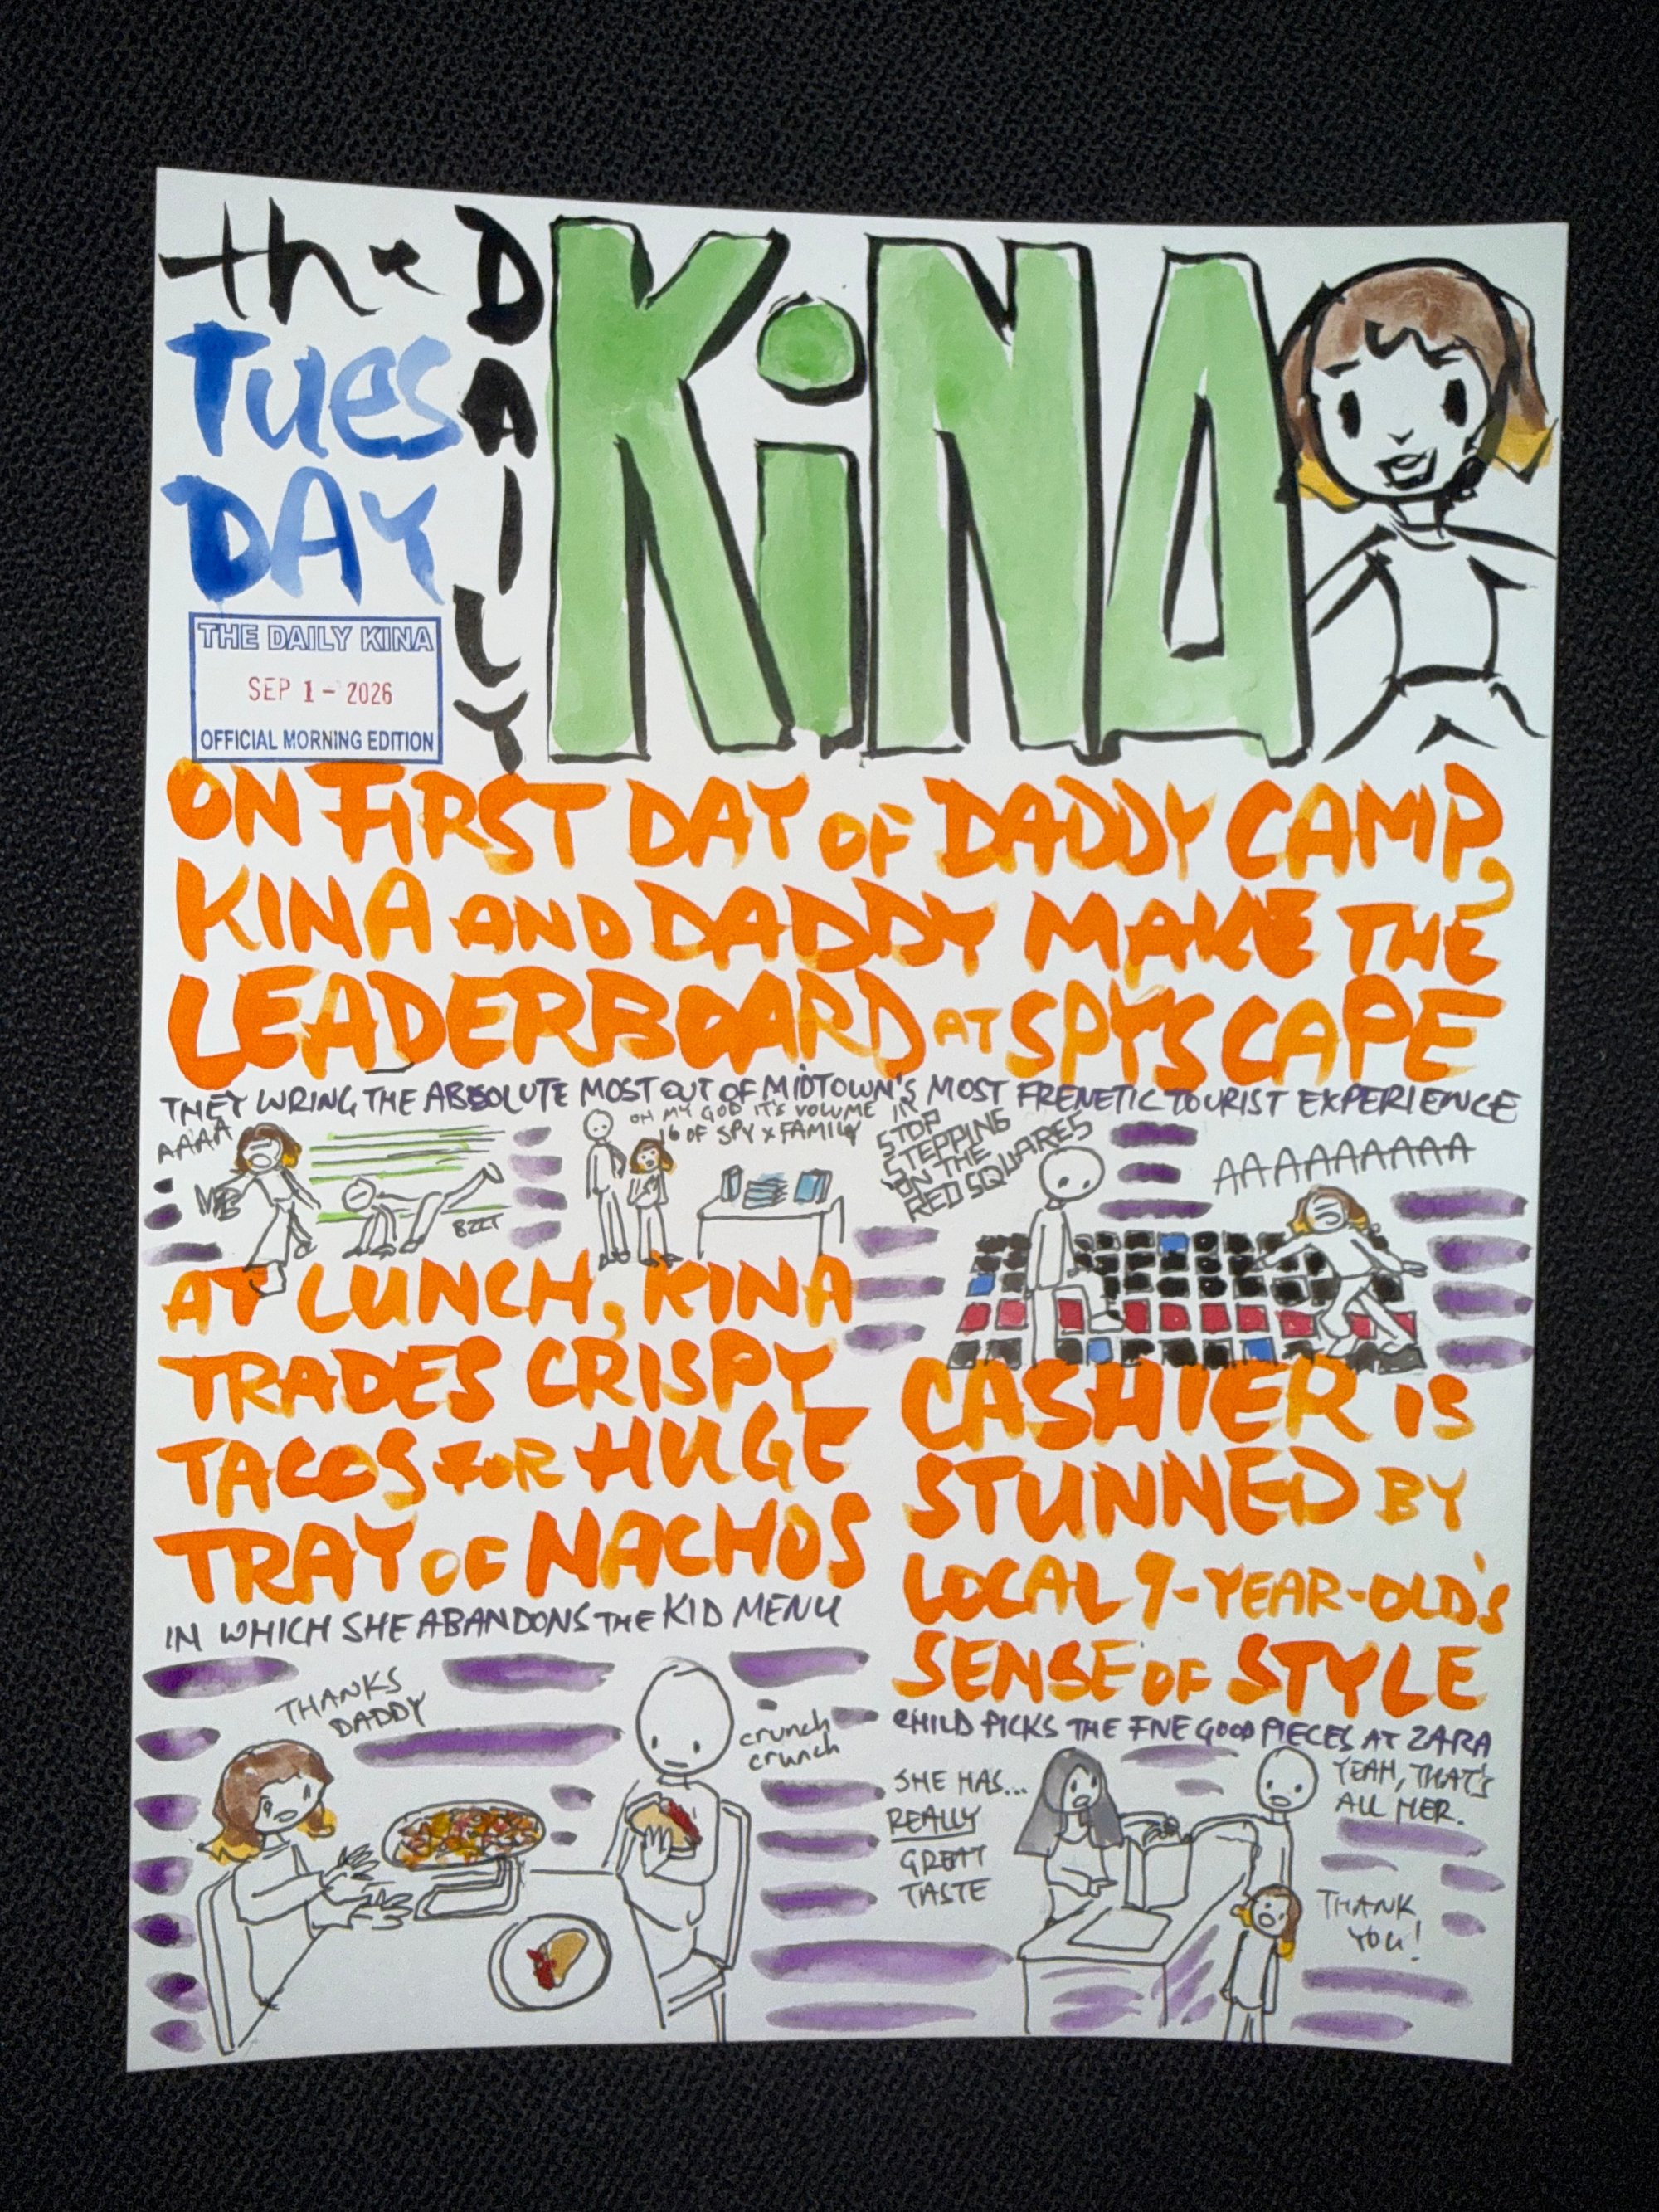 the
TuesDAY
DAILY
KiNA
THE DAILY KINA
SEP 1 - 2026
OFFICIAL MORNING EDITION
ON FIRST DAY OF DADDY CAMP,
KINA AND DADDY MAKE THE
LEADERBOARD AT SPYSCAPE
THEY WRING THE ABSOLUTE MOST OUT OF MIDTOWN'S MOST FRENETIC TOURIST EXPERIENCE
AAAA
BZZT
OH MY GOD IT'S VOLUME
16 OF SPY x FAMILY
STOP
STEPPING
ON THE
RED SQUARES
AAAAAAAAA
AT LUNCH, KINA
TRADES CRISPY
TACOS FOR HUGE
TRAY OF NACHOS
IN WHICH SHE ABANDONS THE KID MENU
THANKS
DADDY
crunch
crunch
CASHIER IS
STUNNED BY
LOCAL 9-YEAR-OLD'S
SENSE OF STYLE
CHILD PICKS THE FIVE GOOD PIECES AT ZARA
SHE HAS...
REALLY
GREAT
TASTE
YEAH, THAT'S
ALL HER.
THANK
YOU!